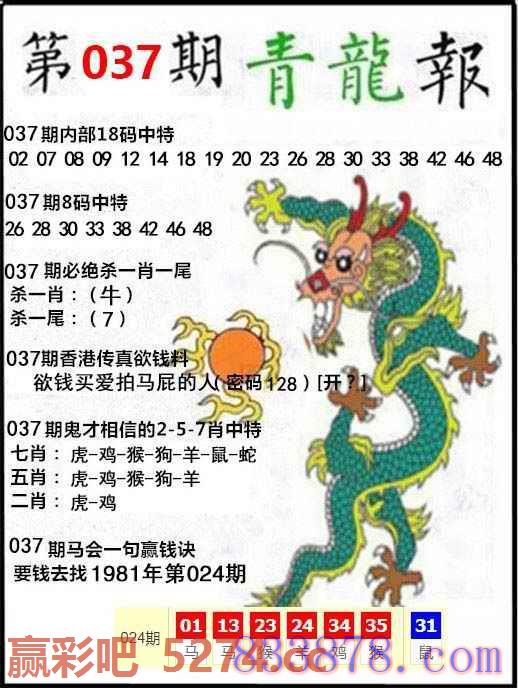 第037期青龍報
037期内部18码中特
02 07 08 09 12 14 18 19 20 23 26 28 30 33 38 42 46 48
037期8码中特
26 28 30 33 38 42 46 48
037期必绝杀一肖一尾
杀一肖：（牛）
杀一尾：（7）
037期香港传真欲钱料
欲钱买爱拍马屁的人（密码128）[开？]
037期鬼才相信的2-5-7肖中特
七肖：虎-鸡-猴-狗-羊-鼠-蛇
五肖：虎-鸡-猴-狗-羊
二肖：虎-鸡
037期马会一句赢钱诀
要钱去找1981年第024期
024期 01 13 23 24 34 35 31
马 马 猴 羊 鸡 猴 鼠
赢彩吧 5274.cc